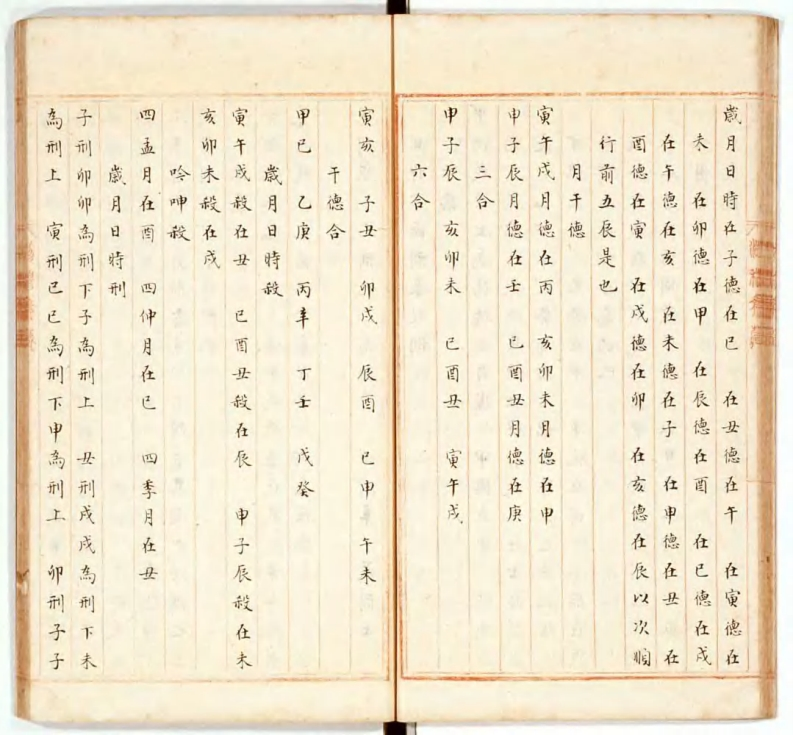 歲月日時在子德在巳　在丑德在午　在寅德在
未　在卯德在甲　在辰德在酉　在巳德在戌
在午德在亥　在未德在子　在申德在丑　在
酉德在寅　在戌德在卯　在亥德在辰以次順
行前五辰是也
月干德
寅午戌月德在丙　亥卯未月德在甲
申子辰月德在壬　巳酉丑月德在庚
三合
申子辰　亥卯未　巳酉丑　寅午戌
六合
寅亥　子丑　卯戌　辰酉　巳申　午未
干德合
甲己　乙庚　丙辛　丁壬　戊癸
歲月日時殺
寅午戌殺在丑　巳酉丑殺在辰　申子辰殺在未
亥卯未殺在戌
吟呻殺
四孟月在酉　四仲月在巳　四季月在丑
歲月日時刑
子刑卯卯為刑下子為刑上　丑刑戌戌為刑下未
為刑上　寅刑巳巳為刑下申為刑上　卯刑子子